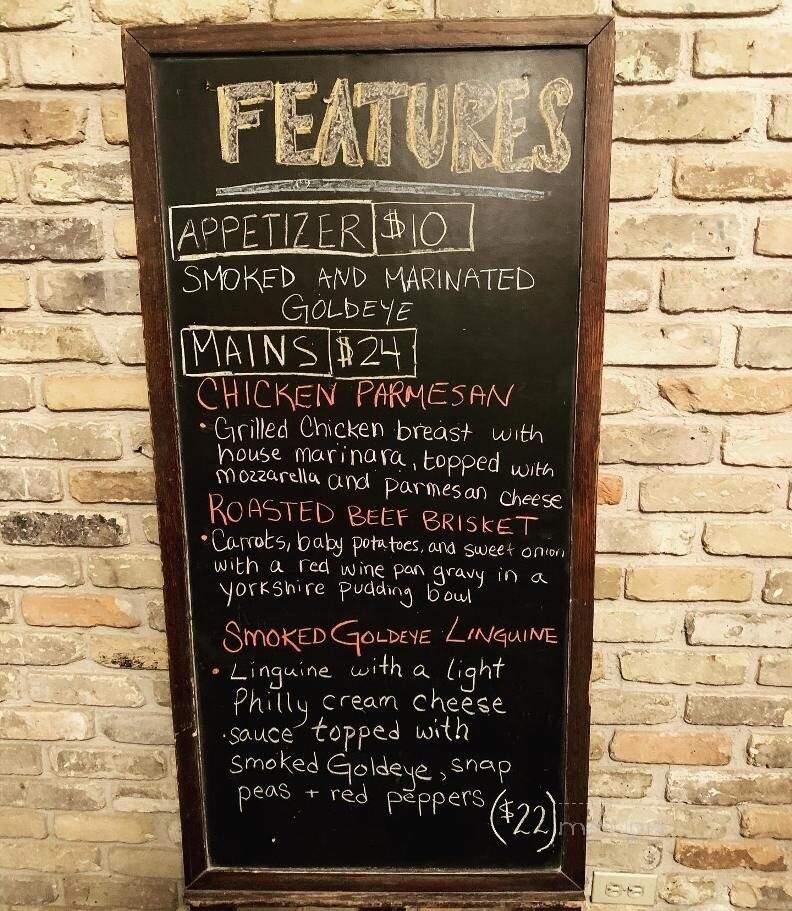 FEATURES
APPETIZER $10
SMOKED AND MARINATED
GOLDEYE
MAINS $24
CHICKEN PARMESAN
• Grilled Chicken breast with
house marinara, topped with
mozzarella and parmesan cheese
ROASTED BEEF BRISKET
• Carrots, baby potatoes, and sweet onion
with a red wine pan gravy in a
yorkshire pudding bowl
SMOKED GOLDEYE LINGUINE
• Linguine with a light
Philly cream cheese
• sauce topped with
smoked Goldeye, snap
peas + red peppers
($22)